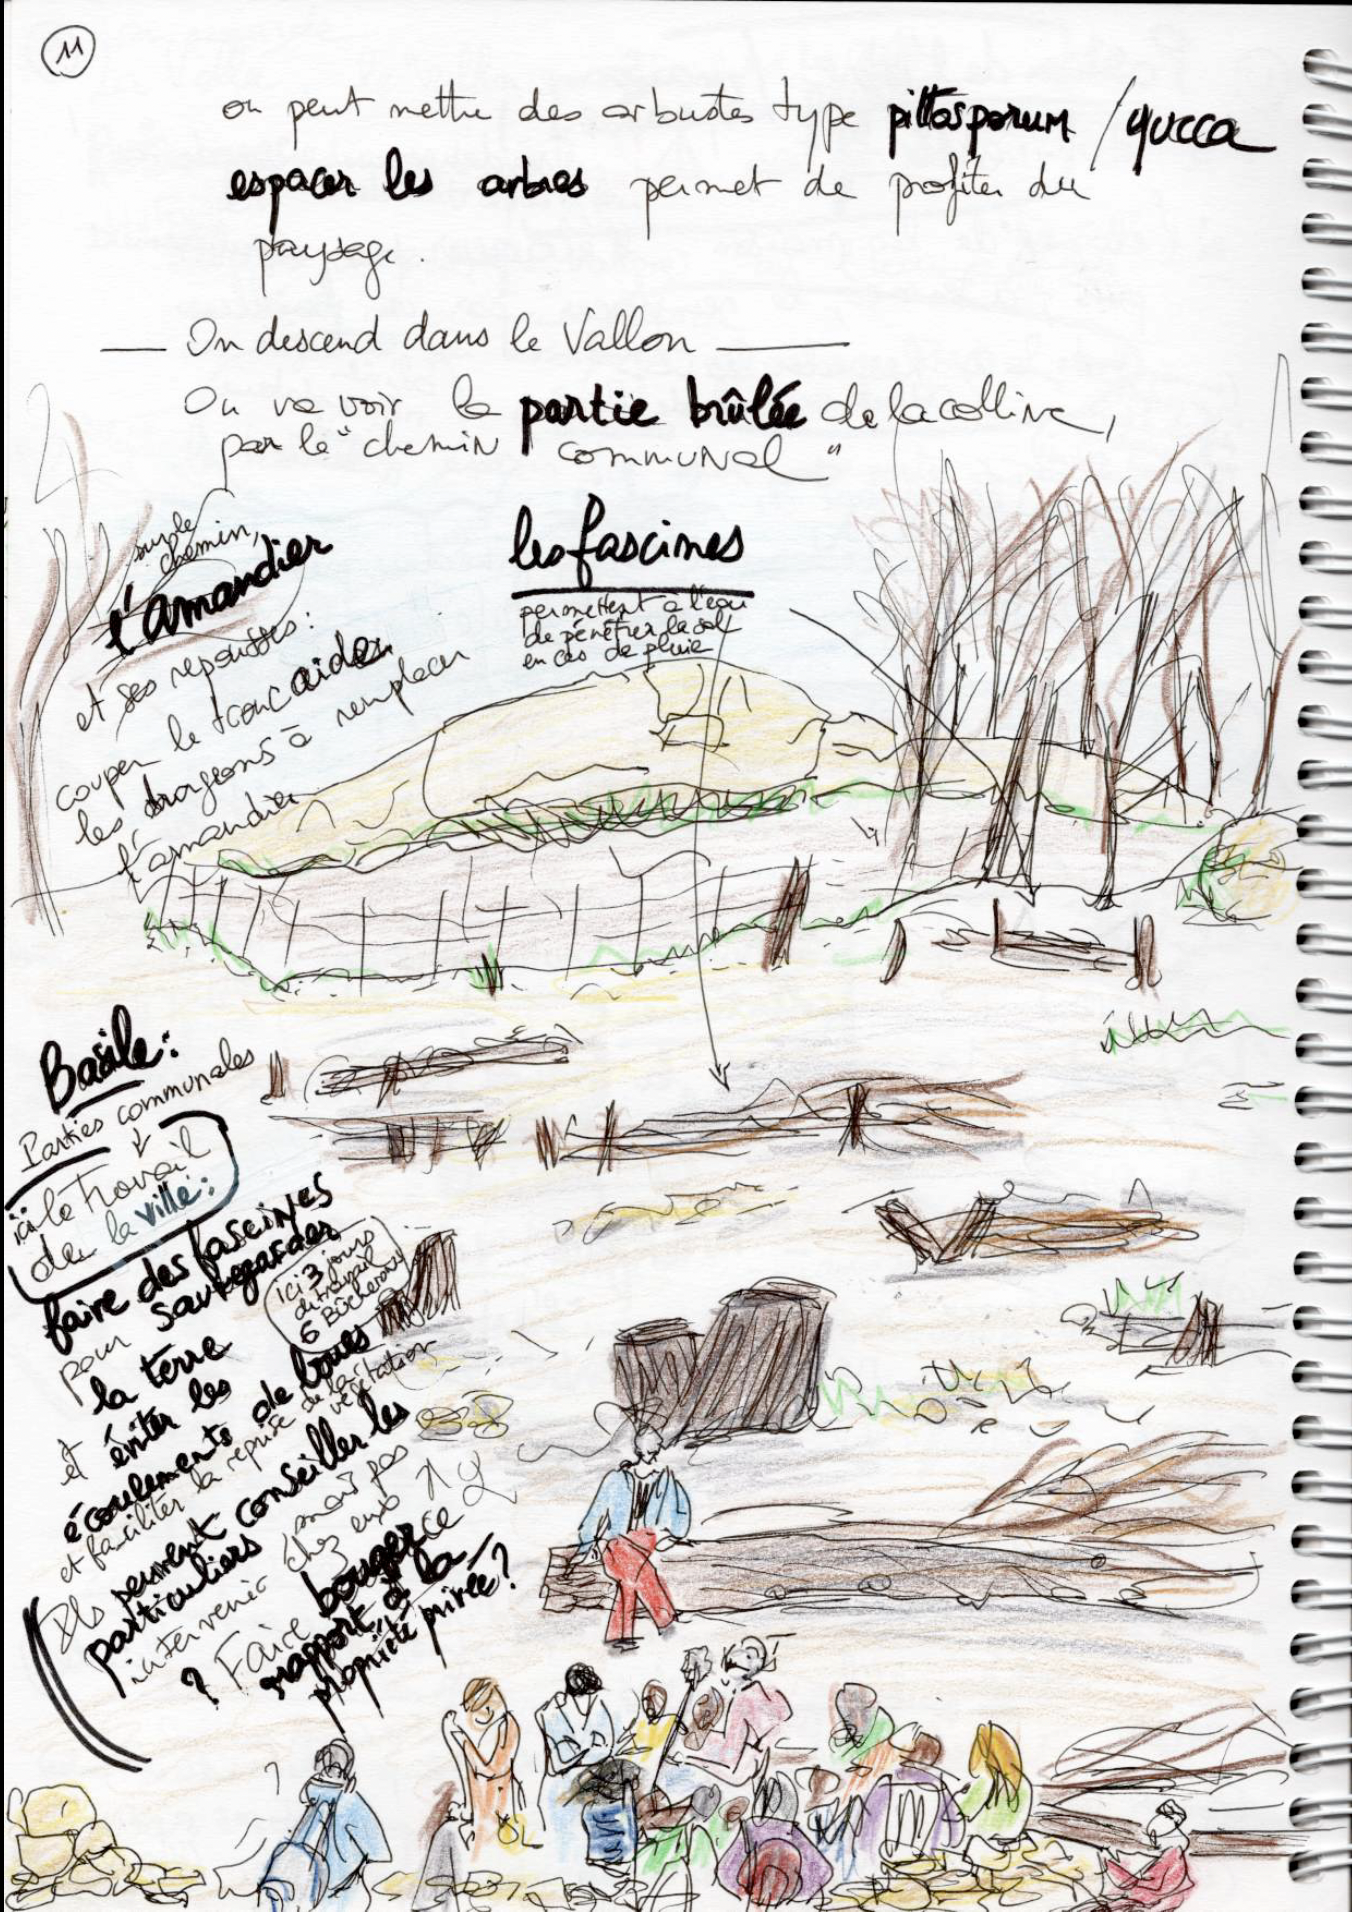 11
on peut mettre des arbustes type pittosporum / yucca
espacer les arbres permet de profiter du
paysage.
On descend dans le Vallon
On va voir la partie brûlée de la colline,
par le "chemin communal"
sur le
chemin,
l'amandier
et ses repousses :
couper le tronc aider
les drageons à remplacer
l'amandier
les fascines
permettent à l'eau
de pénétrer le sol
en cas de pluie
Basile :
Parties communales
ici le travail
de la ville :
faire des fascines
pour sauvegarder
la terre
et éviter les
écoulements de boues
et faciliter la reprise de la végétation
ici 3 jours
du travail
6 Bûcherons
Ils peuvent conseiller les
particuliers mais pas
intervenir chez eux
? Faire bouger ce
rapport à la
propriété privée ?